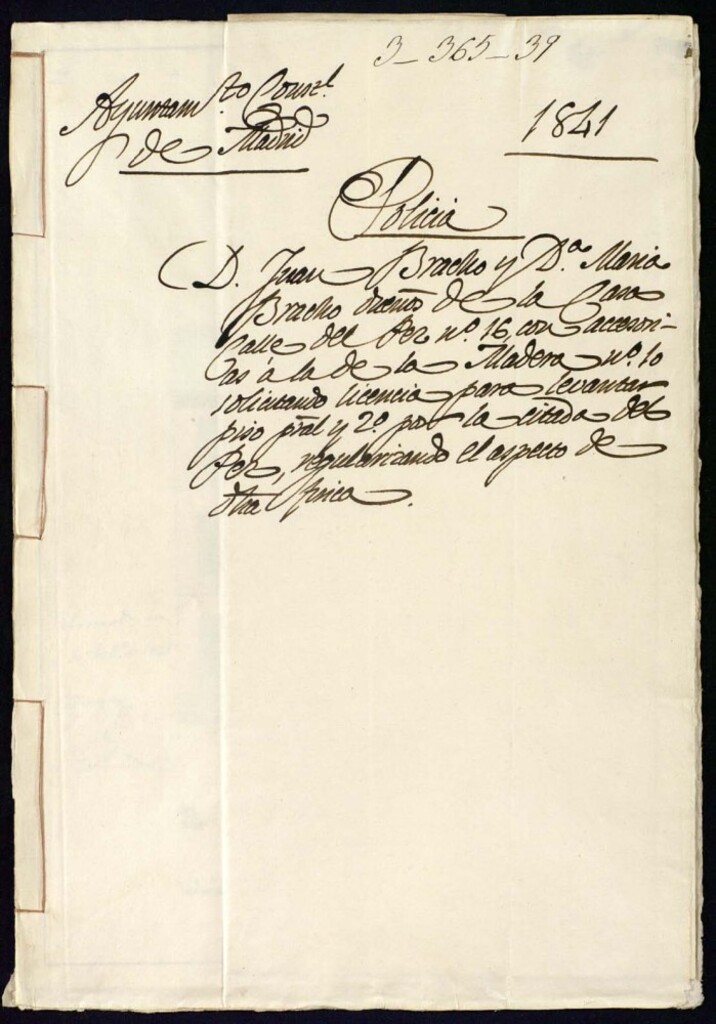 3-365-39
Ayuntam.to Const.l
de Madrid
1841
Policia
D. Juan Bracho y D.a Maria
Bracho dueños de la Casa
Calle del Pez n.o 16 con accesori-
as á la de la Madera n.o 10
solicitando licencia para levantar
piso pral y 2.o por la citada del
Pez, regularizando el aspecto de
dha finca.